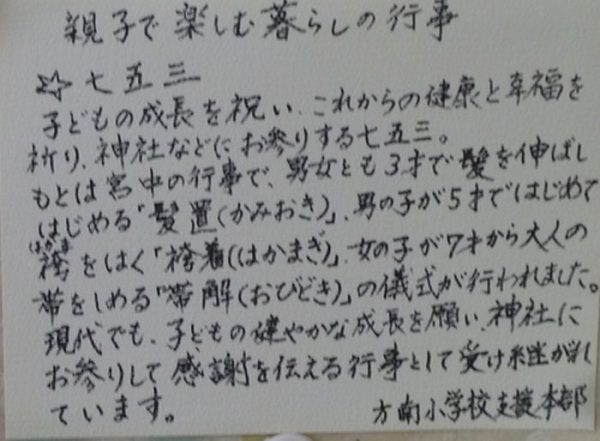 親子で楽しむ暮らしの行事
☆七五三
子どもの成長を祝い、これからの健康と幸福を
祈り、神社などにお参りする七五三。
もとは宮中の行事で、男女とも3才で髪を伸ばし
はじめる「髪置(かみおき)」、男の子が5才ではじめて
はかま
袴をはく「袴着(はかまぎ)」、女の子が7才から大人の
帯をしめる「帯解(おびどき)」の儀式が行われました。
現代でも、子どもの健やかな成長を願い、神社に
お参りして感謝を伝える行事として受け継がれ
ています。
方南小学校支援本部